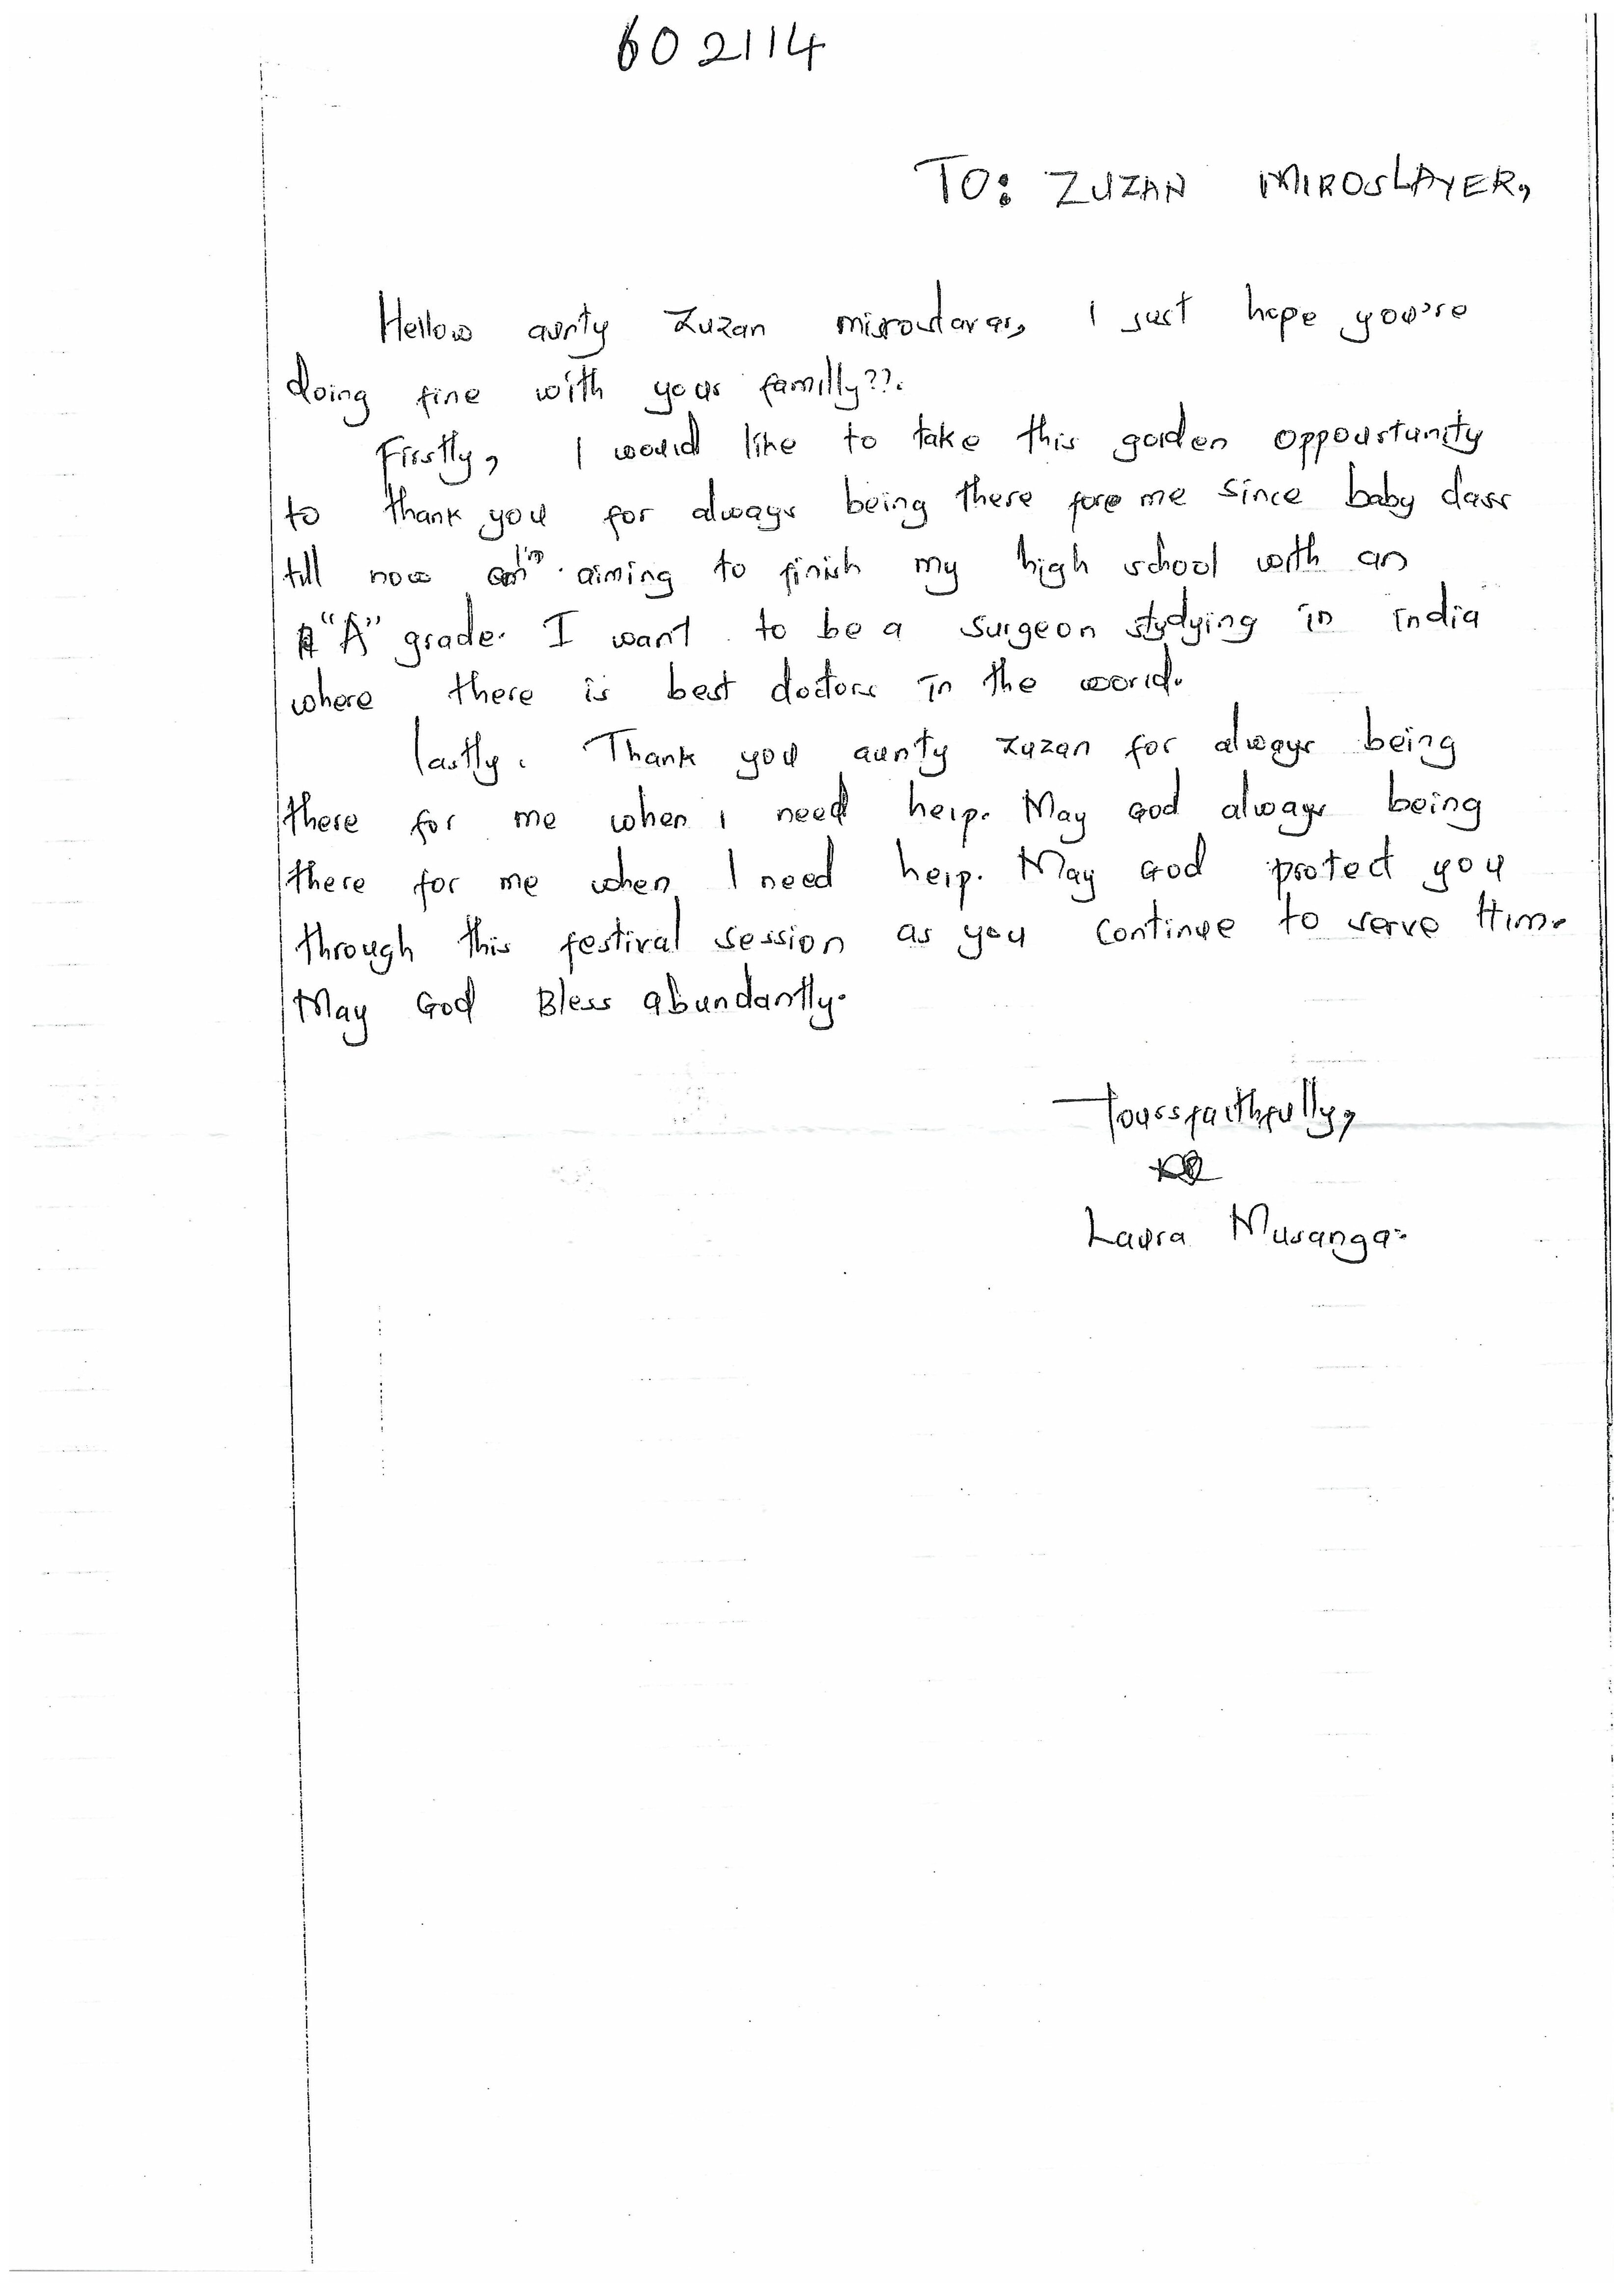 602114
TO: ZUZAN MIROSLAYER,
Hellow aunty Zuzan I just hope you're
doing fine with your familly??.
Firstly, I would like to take this golden oppourtunity
to thank you for always being there fore me since baby class
till now I'm aiming to finish my high school with an
"A" grade. I want to be a surgeon studying in India
where there is best doctors in the world.
lastly. Thank you aunty zuzan for always being
there for me when i need help. May God always being
there for me when I need help. May God protect you
through this festival session as you continue to serve Him.
May God Bless abundantly.
Yoursfaithfully,
Laura Musanga.